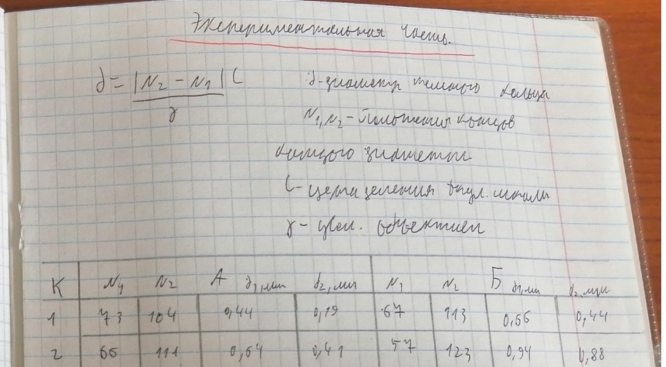 Экспериментальная часть.
d = |N2 - N1| C
γ
d-диаметр темного кольца
N1, N2 - Положения концов
каждого диаметра
C - цена деления окул. шкалы
γ - увел. объектива
К N1 N2 А d1, мм d2, мм N1 N2 Б d1, мм d2, мм
1 73 104 0,44 0,19 67 113 0,66 0,44
2 66 111 0,64 0,41 57 123 0,94 0,88